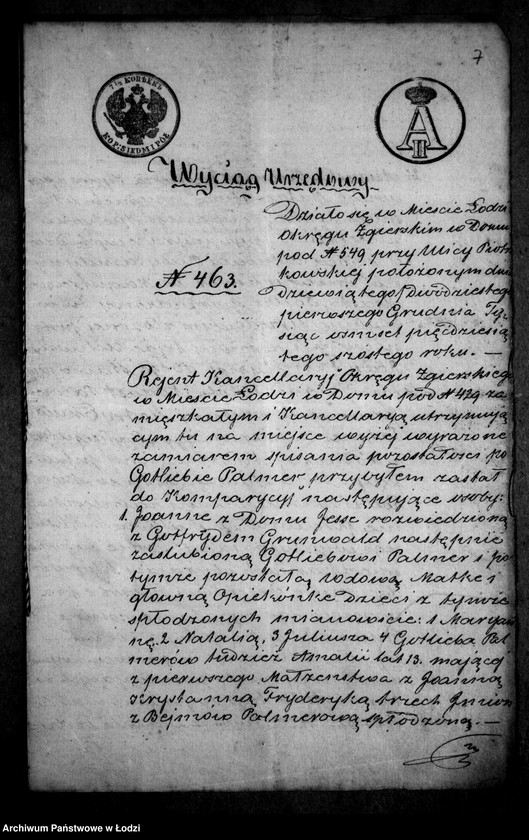 7
7½ КОПѢЕКЪ
KOP: SIEDM I PÓŁ
A II
Wyciąg Urzędowy
Działo się w Mieście Łodzi
Okręgu Zgierskim w Domu
pod N 549 przy Ulicy Piotr
kowskiej położonym dnia
Dziewiątego/Dwódziestego
pierwszego Grudnia Ty,
siąc ośmset pięćdziesią
tego szóstego roku. —
N 463.
Rejent Kancellaryj Okręgu Zgierskiego
w Mieście Łodzi w Domu pod N 439 za
mięszkałym i Kancellaryą utrzymują
cym tu na miejsce wyżej wyrażone
zamiarem spisania pozostałości po
Gotliebie Palmer przybyłem zastał
do Komparycyj następujące osoby:
1. Joannę z Domu Jesse rozwiedzioną
z Gotfrydem Grunwald następnie
zaślubioną Gotliebowi Palmer i po
tymże pozostałą Wdową Matkę i
główną Opiekónkę Dzieci z tymże
spłodzonych mianowicie: 1 Maryan
nę. 2 Natalią, 3 Juliusza 4 Gotlieba Pal
merów tudzież Amalii lat 13. mającej
z pierwszego Małżeństwa z Joanną
Krystanną Fryderyką trzech Imion
z Bejmów Palmerową spłodzoną. —
Archiwum Państwowe w Łodzi